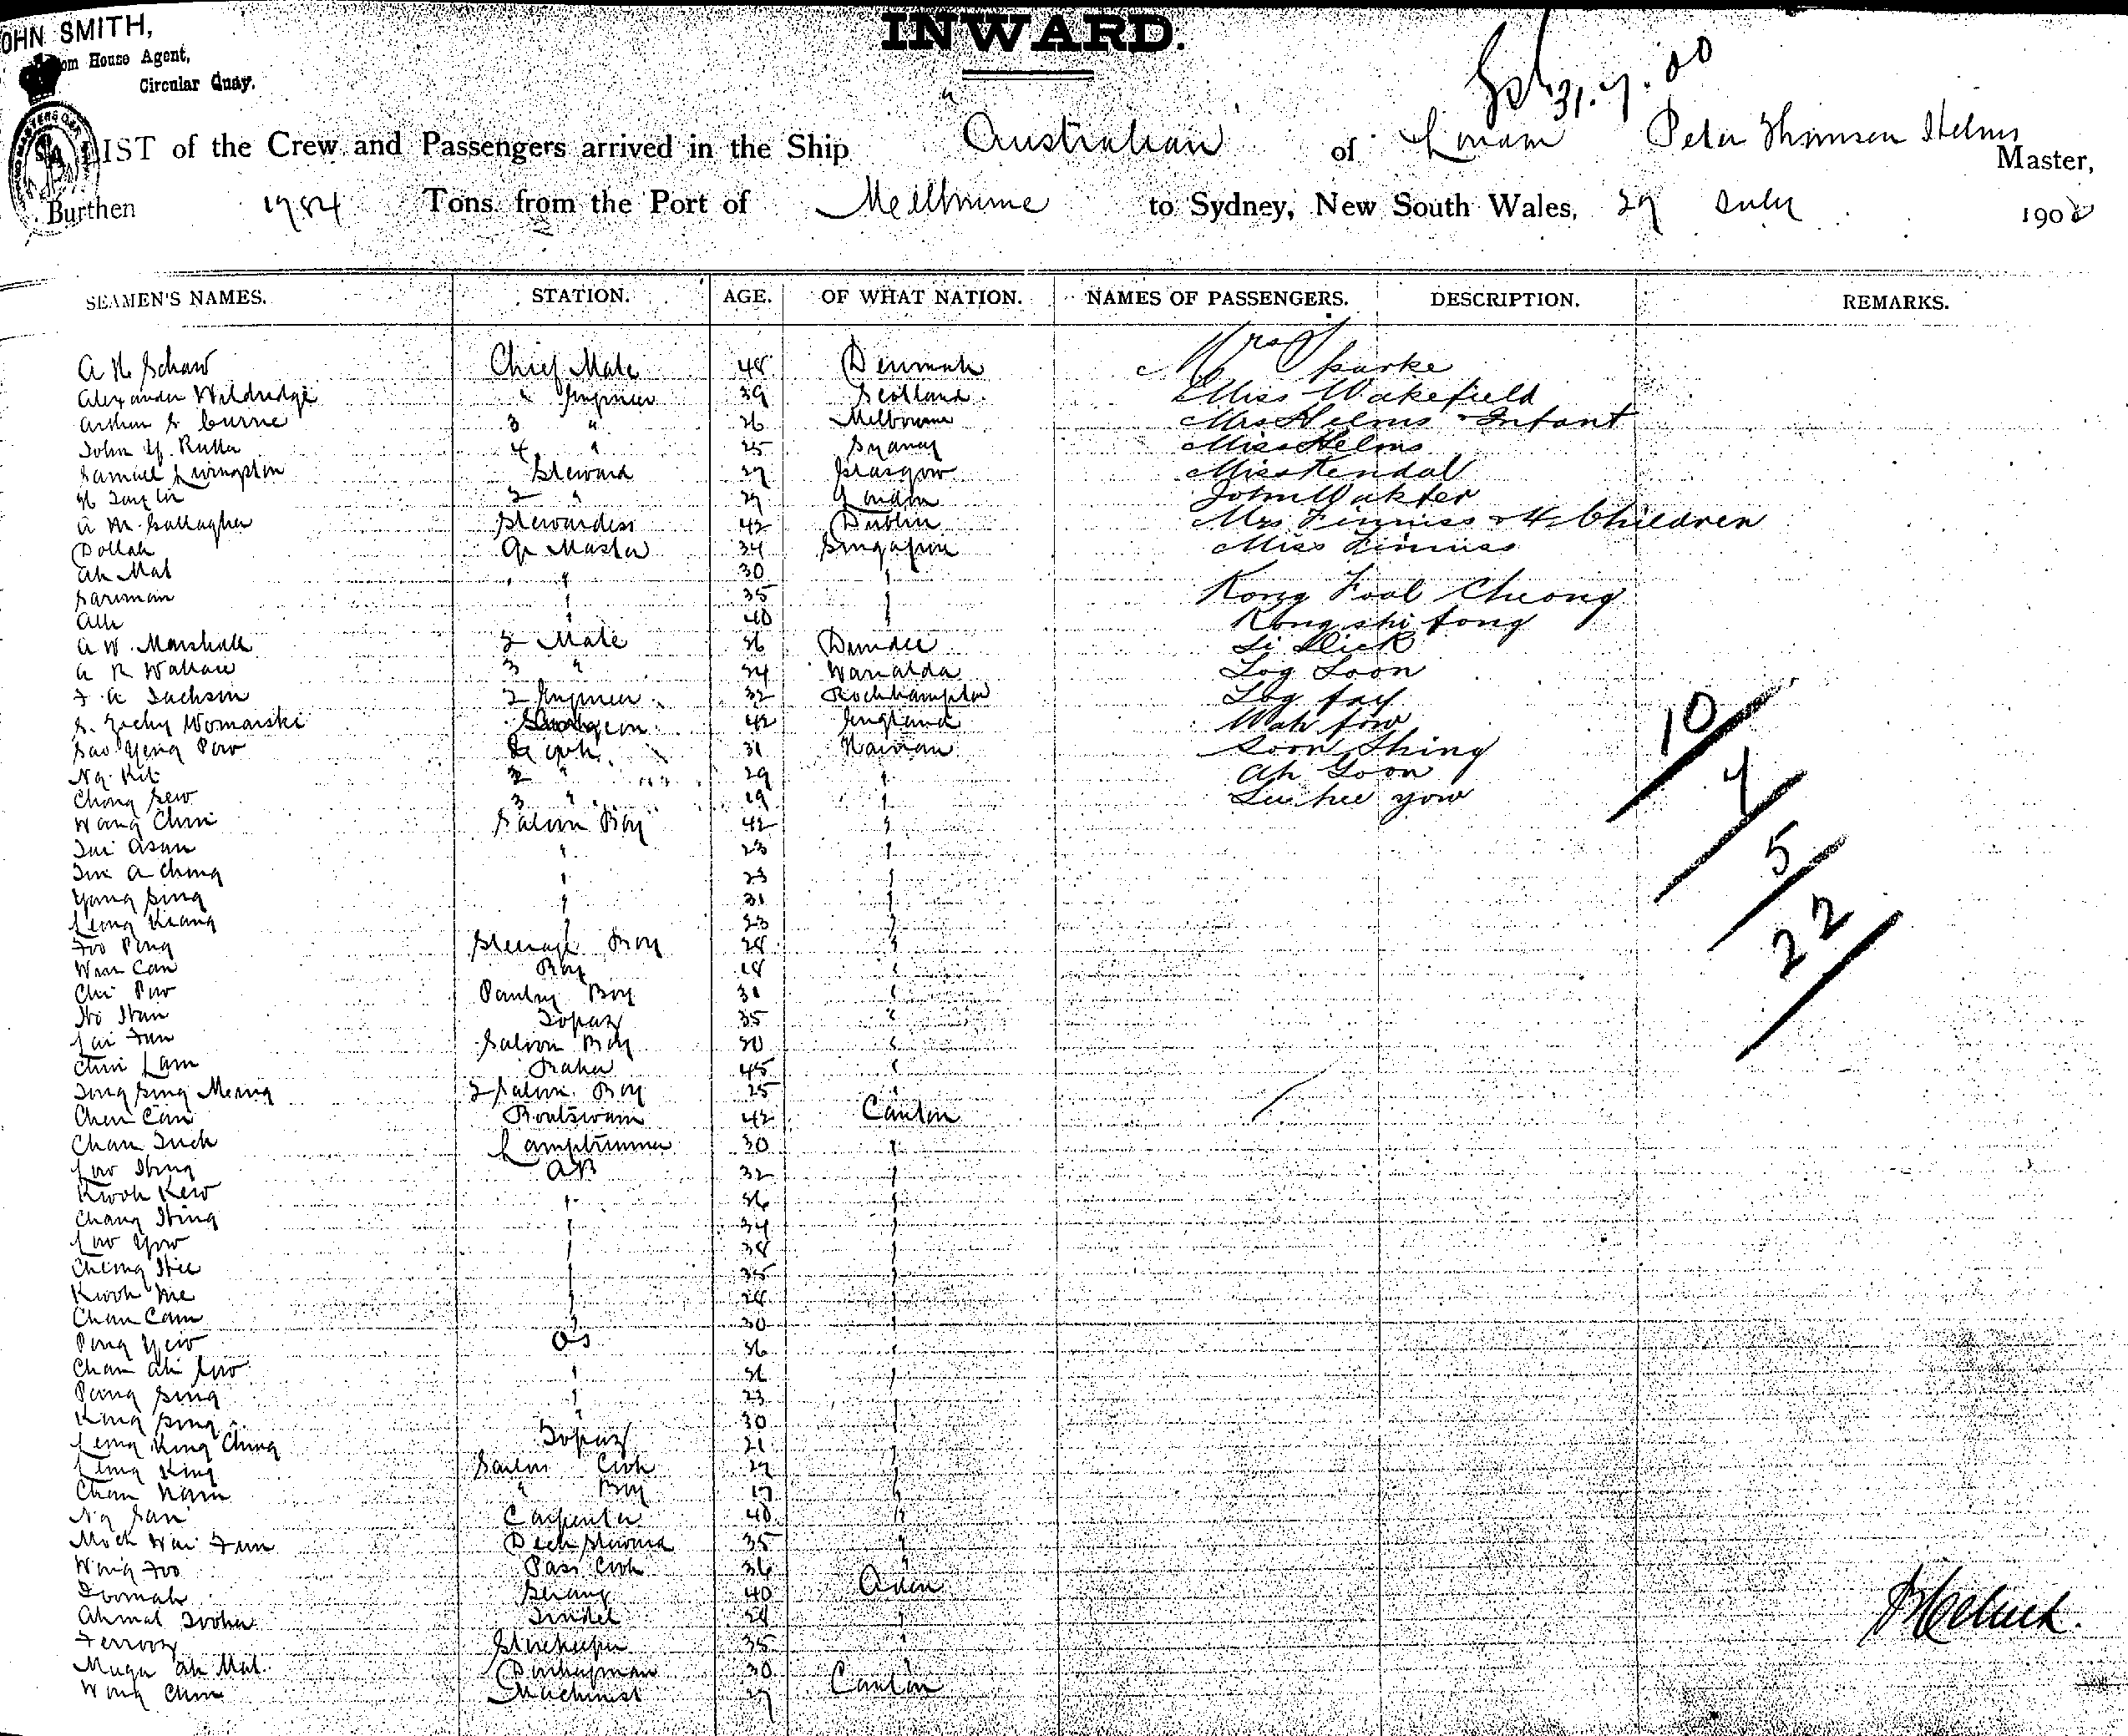 JOHN SMITH,
Custom House Agent,
Circular Quay.
INWARD.
31.7.00
LIST of the Crew and Passengers arrived in the Ship "Australian" of Peter Thomson Helms Master,
Burthen 1984 Tons from the Port of Melbourne to Sydney, New South Wales, 29 July 190
SEAMEN'S NAMES. STATION. AGE. OF WHAT NATION. NAMES OF PASSENGERS. DESCRIPTION. REMARKS.
A N Schaw Chief Mate 48 Denmark Mrs Sparke
Alexander Wildredge " Engineer 39 Scotland Miss Wakefield
Arthur S Curne 3 " 26 Melbourne Mrs Helms & Infant
John Y. Rutta 4 " 25 Sydney Miss Helms
Samuel Livingston Steward 27 Glasgow Miss Kendal
2 " 29 London John Wakter
A M Gallagher Stewardess 42 Dublin Mrs Finniss & 4 Children
Dollah Qr Master 34 Singapore Miss Finniss
Ah Mat " 30 "
Sariman " 35 " Kong Foal Cheong
Alli " 40 " Kong shi fong
A W. Marshall 2 Mate 36 Dundee Li Dick
A R Wallace 3 " 24 Warialda Log Loon
F. A Jackson 2 Engineer 32 Rockhampton Log fay
S. Zichy Womarski Surgeon 42 England Wah fow
Sao Yeng Pow Cook 31 Hainan Soon Shing
Ng Kit 2 " 29 " Ah Goon
Chong Sew 3 " 19 " Lee hee yow
Wong Chin Saloon Boy 42 "
Tui Asam " 23 "
Tui A Chong " 23 "
Yong Sing " 31 "
Leong Kiang " 23 "
Foo Pong Steerage Boy 28 "
Wan Can Boy 18 "
Chi Pow Pantry Boy 31 "
Ho Han Topaz 35 "
Lai Fun Saloon Boy 20 "
Chin Lam 45 "
Tong Sing Meing 2 Saloon Boy 25 "
Chen Can Boatswain 42 Canton
Chan Tuck Lamptrimmer 30 "
Low Hing AB 32 "
Kwok Kew " 36 "
Chang Hing " 34 "
Low Yow " 38 "
Cheong Hee " 35 "
Kwok Me " 28 "
Chan Cam " 30 "
Pong Yew OS 36 "
Chan Ah Low " 36 "
Pong Sing " 23 "
Kong Sing " 30 "
Leong King Ching Topaz 21 "
Leong King Sailors Cook 27 "
Chan Nam " Boy 17 "
Ng San Carpenter 40 "
Mock Wai Fun Deck Steward 35 "
Wong Foo Pass Cook 36 "
Doomah Serang 40 Aden
Ahmat Tindel 28 "
Ferrooz Storekeeper 35 "
Ah Mat Donkeyman 30 "
Wong Chin Machinist 27 Canton
10
7
5
22